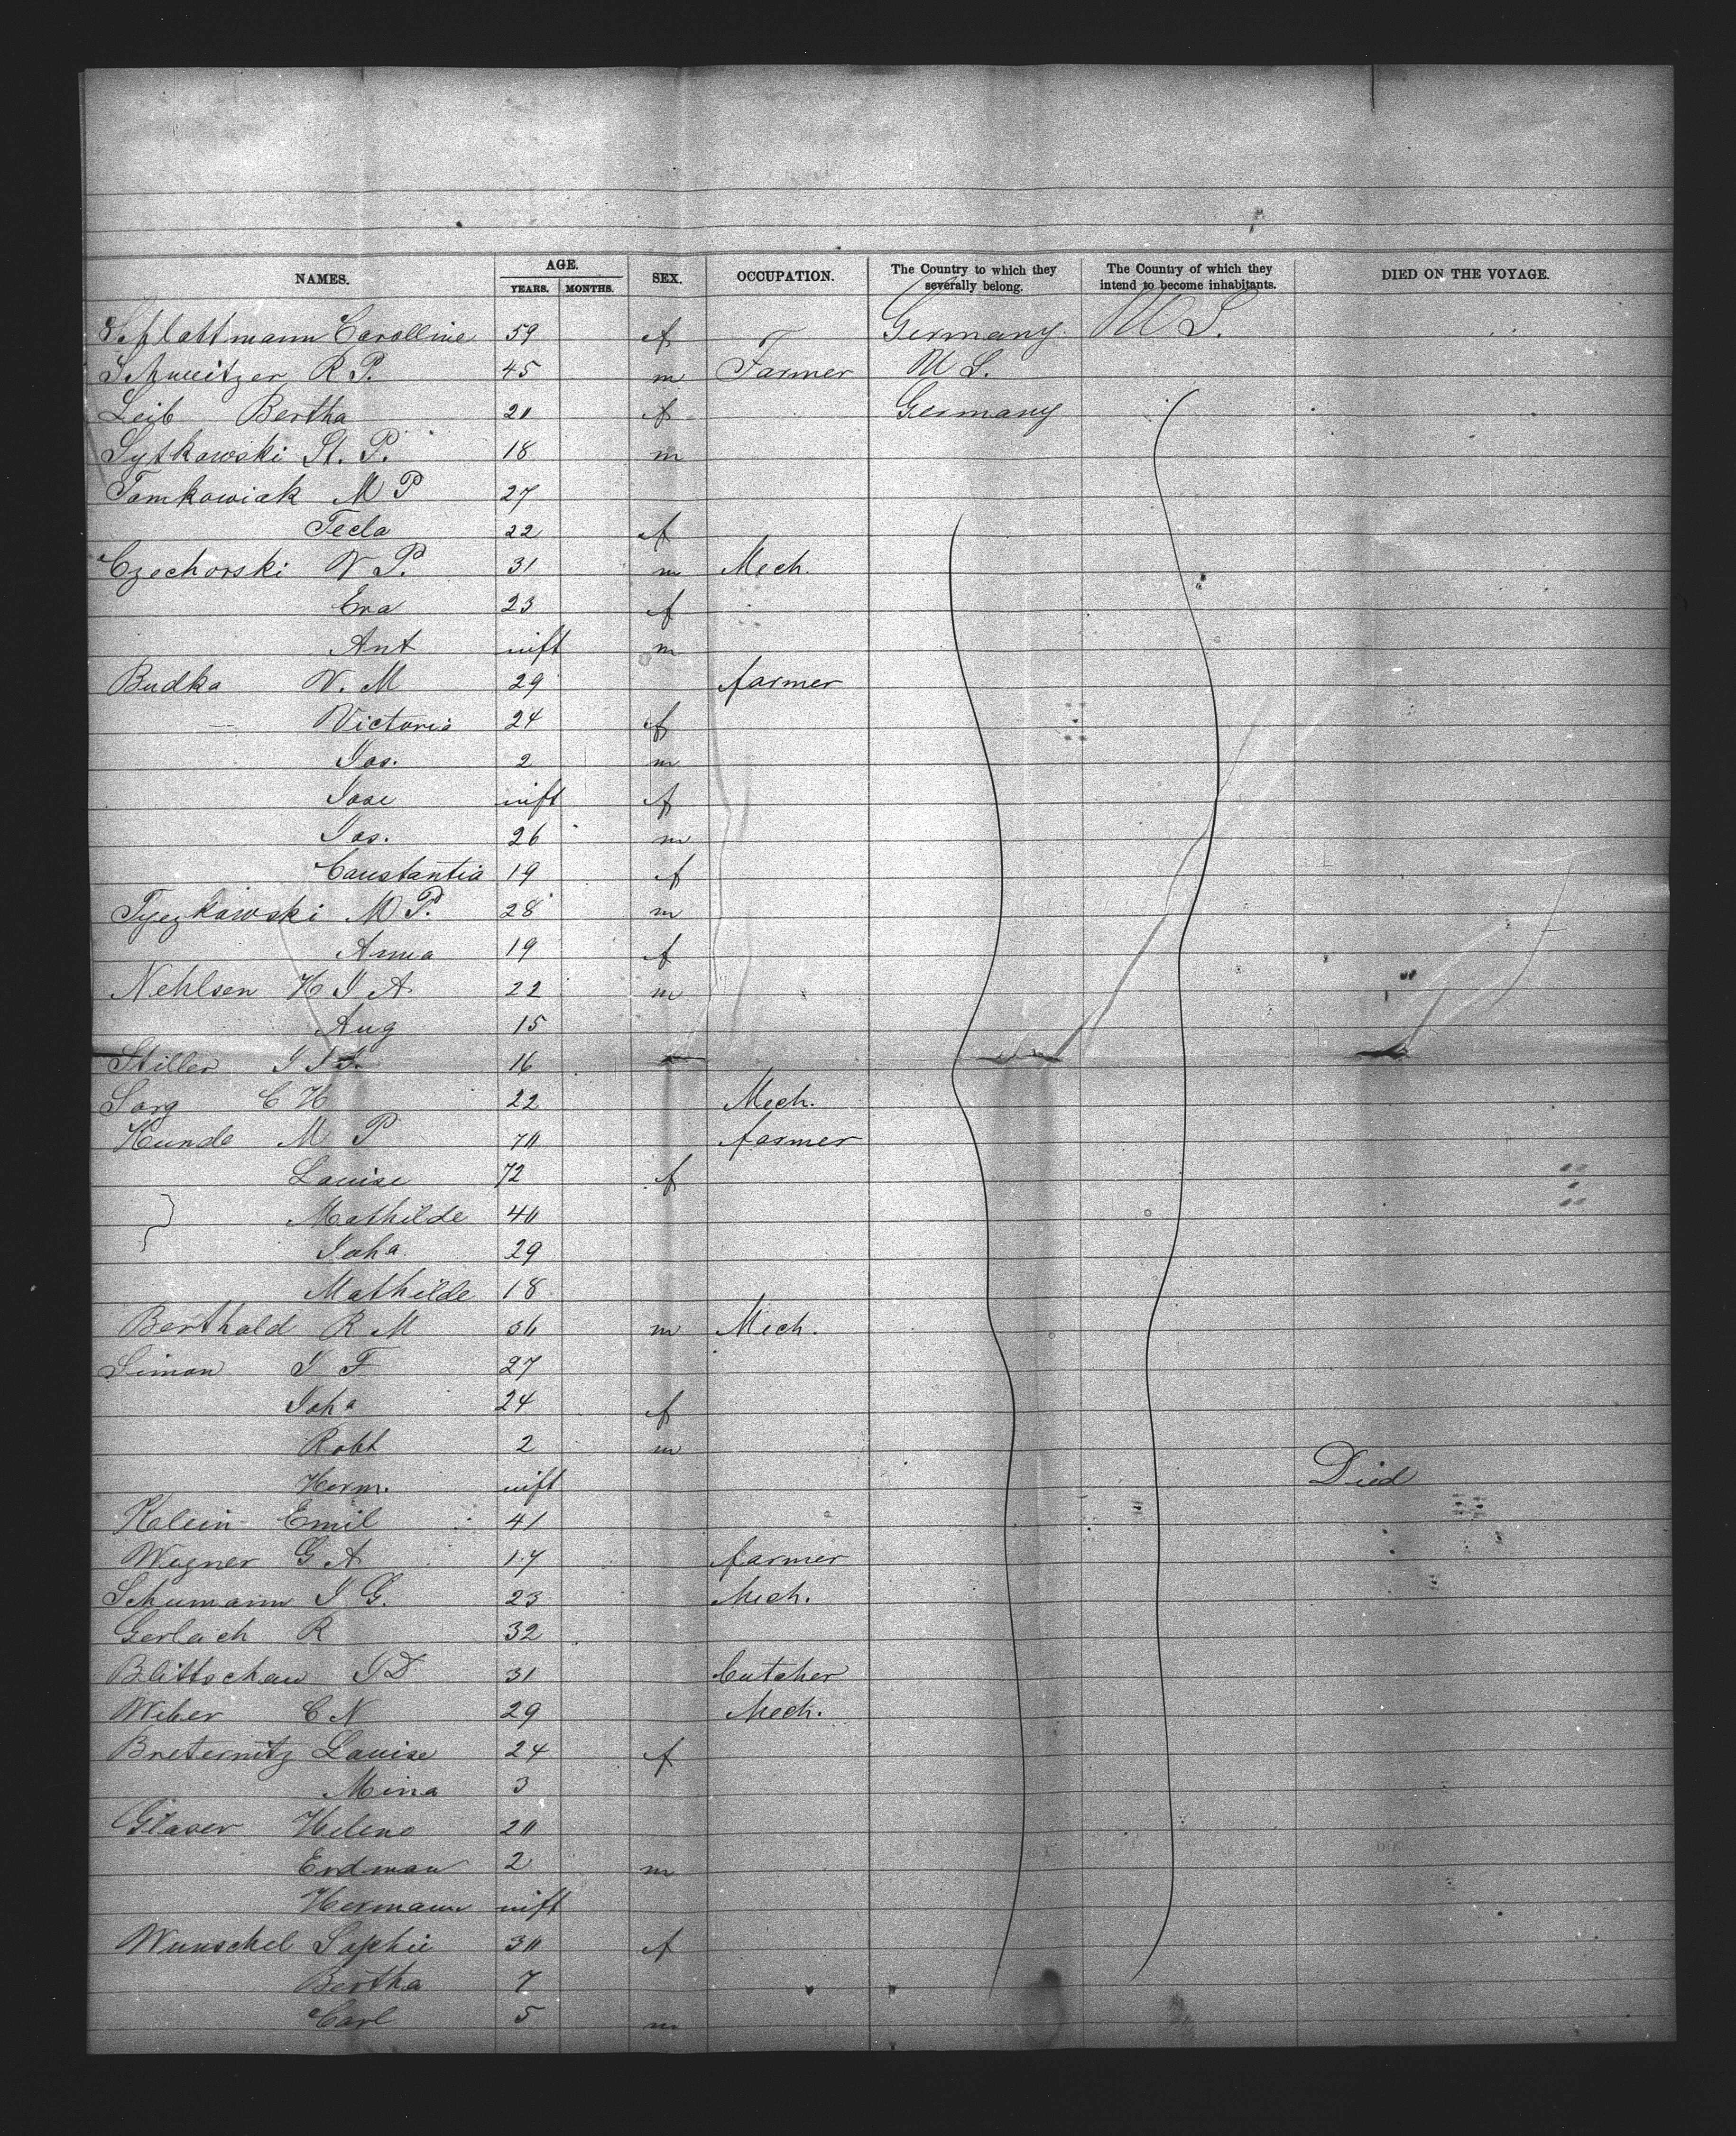 NAMES. AGE. YEARS. MONTHS. SEX. OCCUPATION. The Country to which they severally belong. The Country of which they intend to become inhabitants. DIED ON THE VOYAGE.
Schlattmann Carolline 59 f Germany U S.
Schweitzer R P. 45 m Farmer U S.
Leib Bertha 20 f Germany
Sytkowski St. P. 18 m
Tomkowiak M P 27
Tecla 22 f
Czechorski V P. 31 m Mech.
Eva 23 f
Ant inft m
Budka V. M 29 farmer
Victoria 24 f
Jos. 2 m
Jose inft f
Jos. 26 m
Constantia 19 f
Tyczkowski M P. 28 m
Anna 19 f
Nehlsen H J A 22 m
Aug 15
Stiller J 16
Sorg C H 22 Mech.
Kunde M P 70 farmer
Louise 72 f
Mathilde 40
Joha 29
Mathilde 18
Berthold R M 36 m Mech.
Simon J F 27
Joha 24 f
Robt 2 m
Herm. inft Died
Klein Emil 41
Wegner G A 17 farmer
Schumann J G. 23 Mech.
Gerlach R 32
Blittschau J D 31 butcher
Weber C N 29 Mech.
Breternitz Louise 24 f
Mina 3
Glaser Helene 20
Erdman 2 m
Hermann inft
Wunschel Sophie 30 f
Bertha 7
Carl 5 m